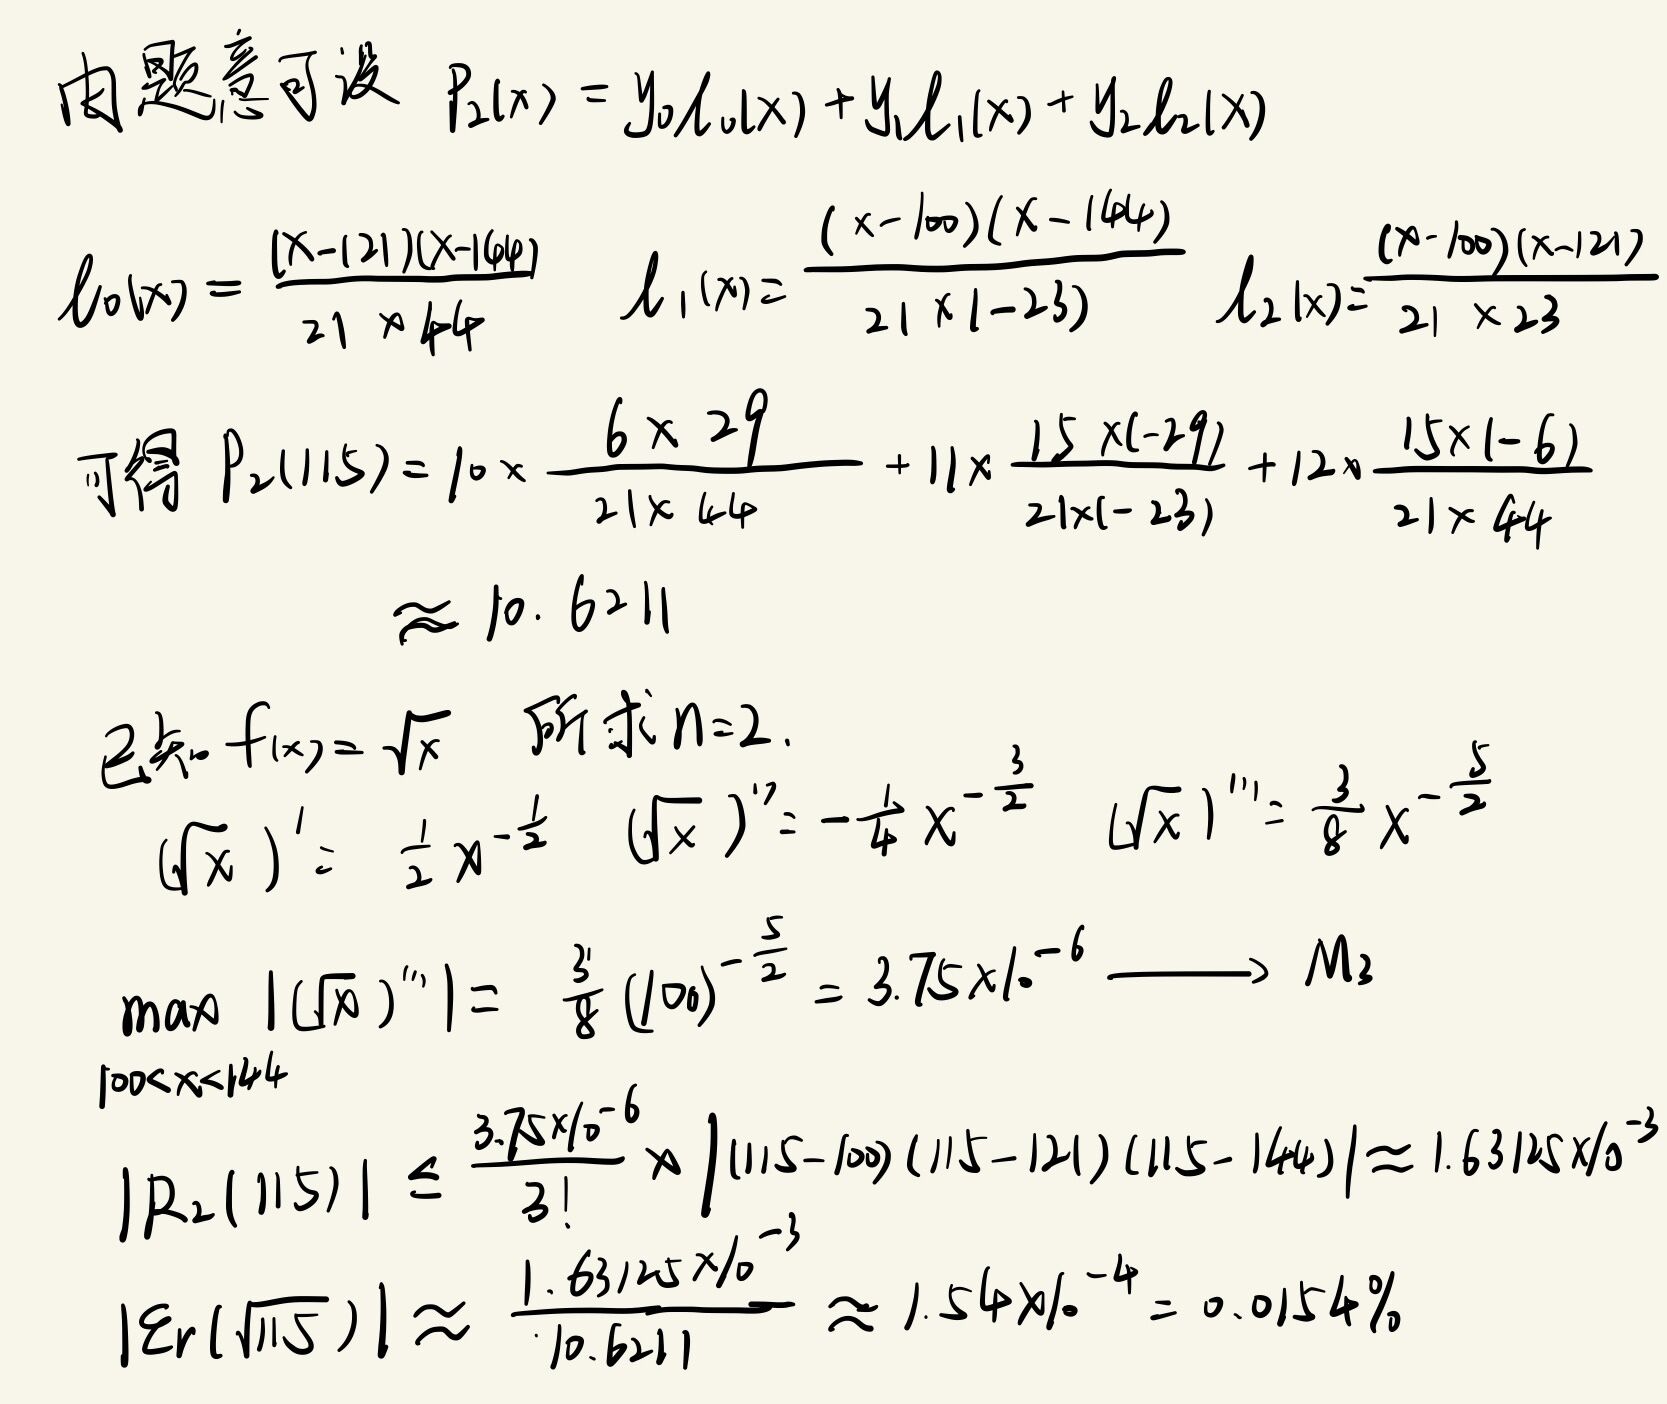 由题意可设 P₂(x) = y₀l₀(x) + y₁l₁(x) + y₂l₂(x)
l₀(x) = (x-121)(x-144) / 21 × 44    l₁(x) = (x-100)(x-144) / 21 × (-23)    l₂(x) = (x-100)(x-121) / 21 × 23
可得 P₂(115) = 10 × (6 × 29) / (21 × 44) + 11 × (15 × (-29)) / (21×(-23)) + 12 × (15×(-6)) / (21 × 44)
≈ 10.6211
已知 f(x) = √x 所求 n=2.
(√x)' = 1/2 x^(-1/2)    (√x)'' = -1/4 x^(-3/2)    (√x)''' = 3/8 x^(-5/2)
max |(√x)'''| = 3/8 (100)^(-5/2) = 3.75×10⁻⁶ ⟶ M₃
100<x<144
|R₂(115)| ≤ 3.75×10⁻⁶ / 3! × |(115-100)(115-121)(115-144)| ≈ 1.63125×10⁻³
|εr(√115)| ≈ 1.63125×10⁻³ / 10.6211 ≈ 1.54×10⁻⁴ = 0.0154%